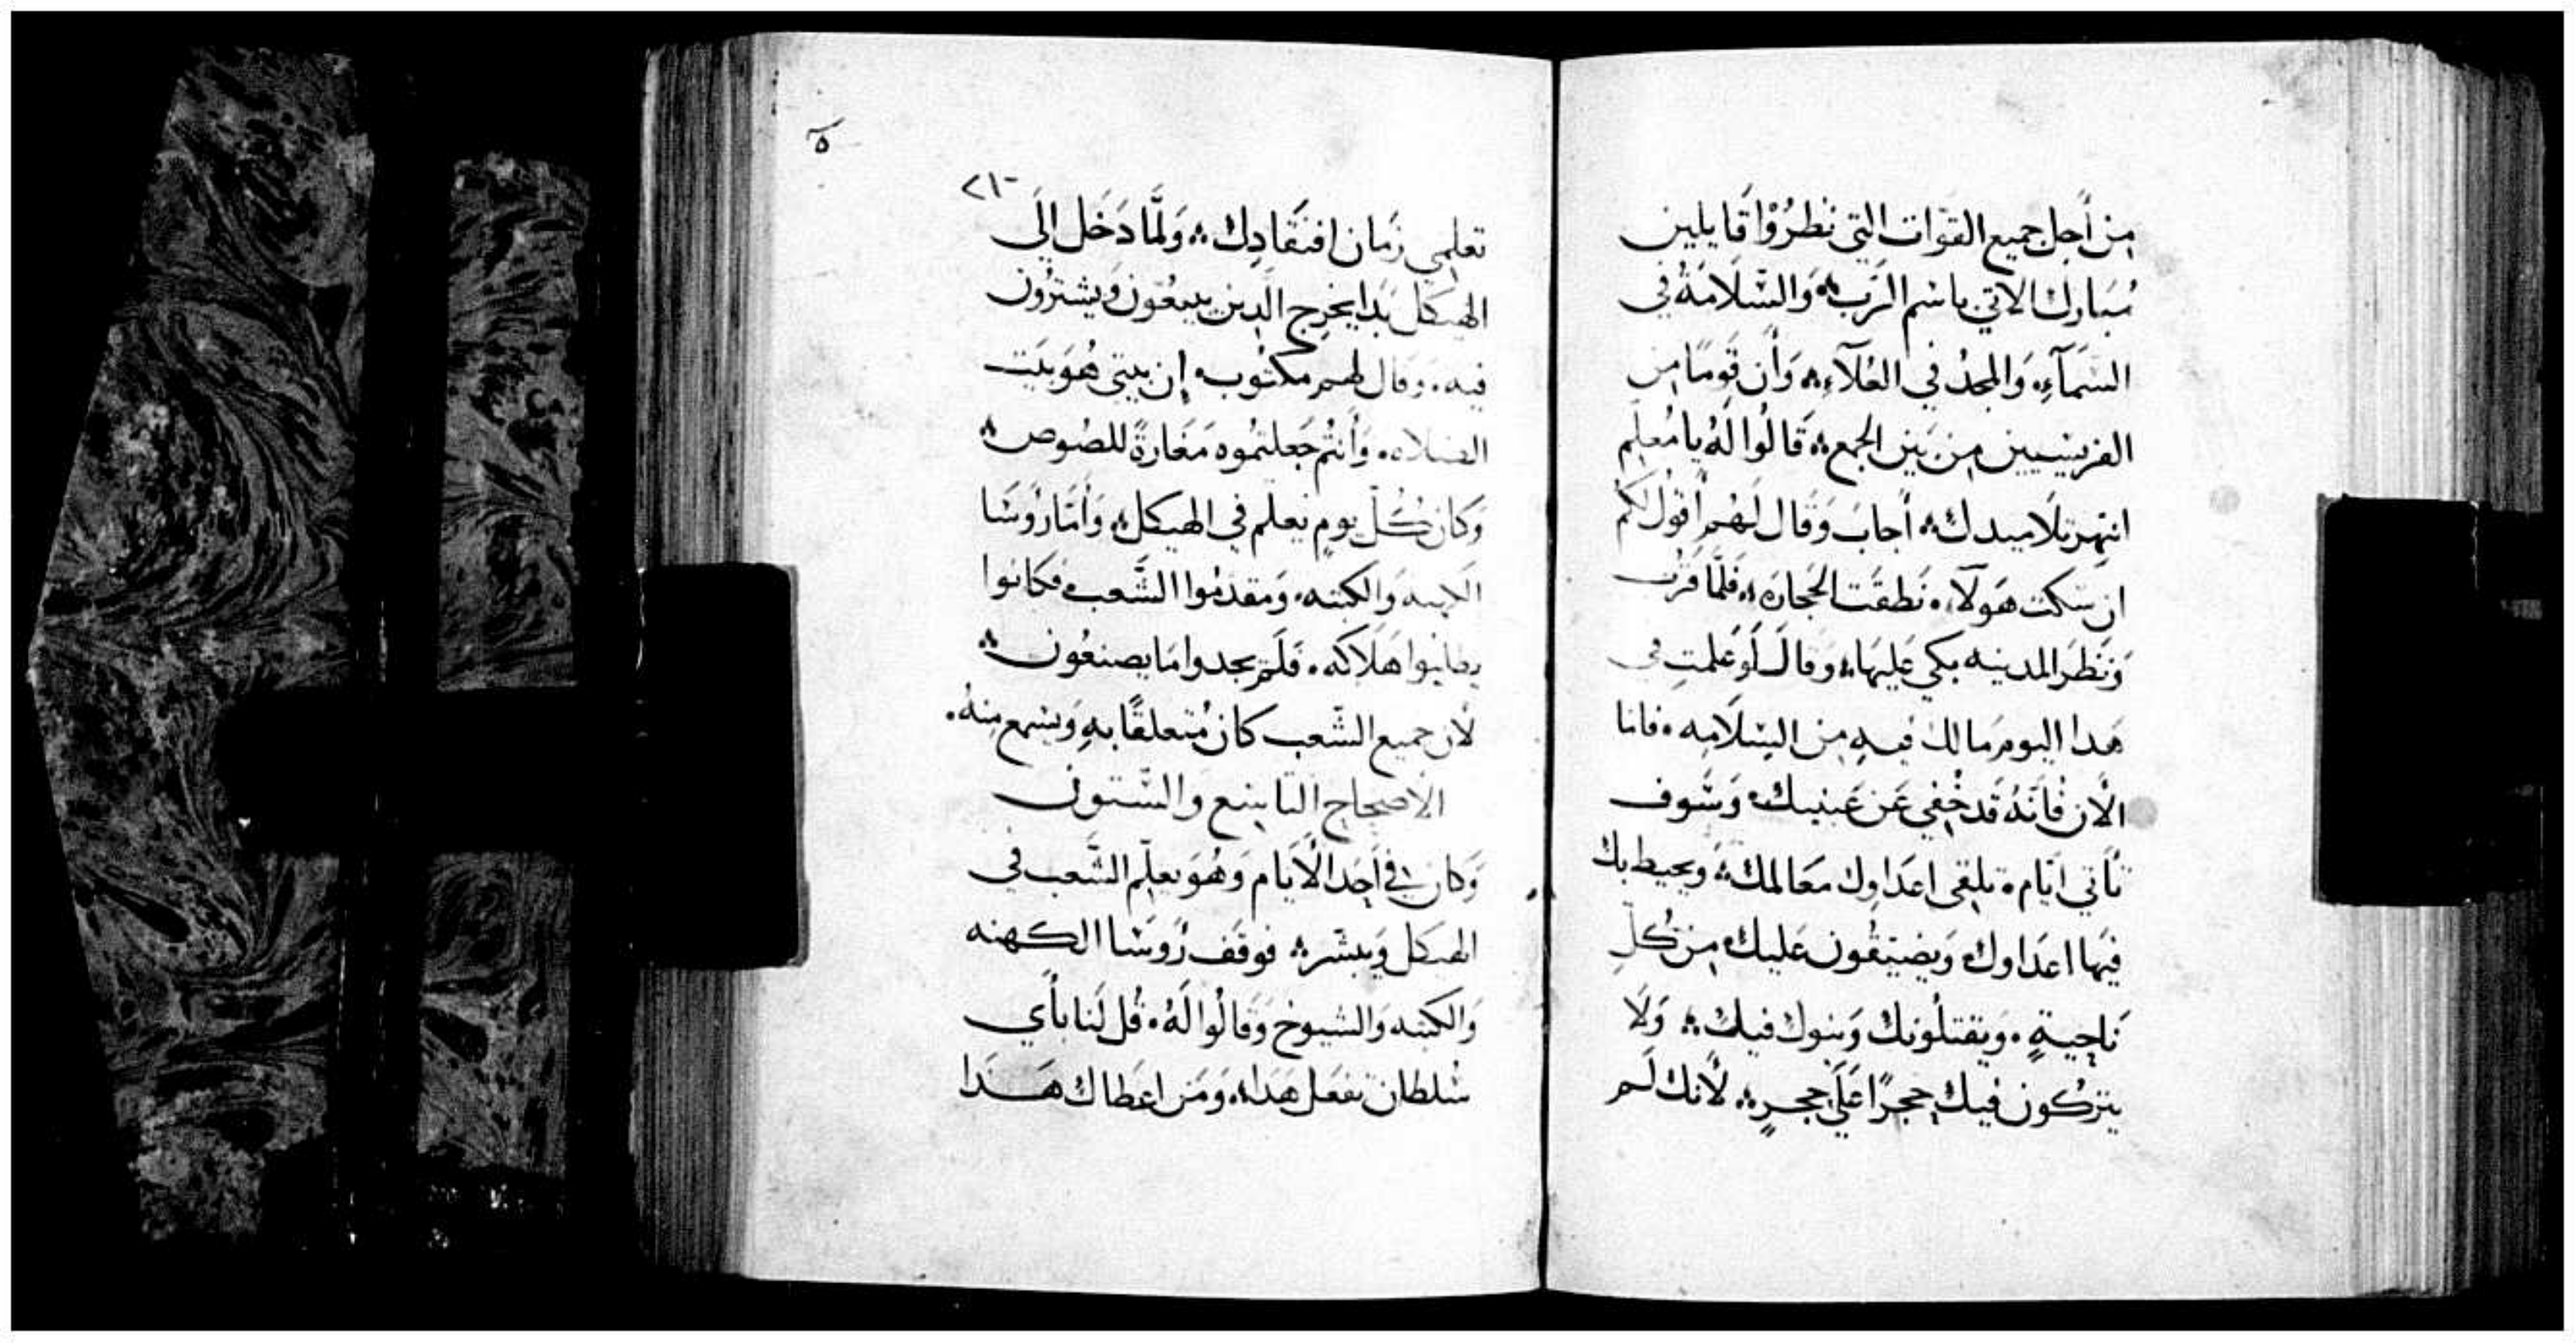 مِن أَجل جميع القوّات التي نَظرُوْا قَايلين
مُبَارك الاتي باسْم الرَب؞ وَالسّلَامَةُ في
السَمَآءِ، وَالمجدُ في العُلَآءِ؞ وَأَن قَومًا مِن
الفريسيين مِن بَين الجمع؞ قَالُوا لَهُ يا مُعلِّم
انتهِر تلَاميدك؞ أَجابَ وَقَال لَهُم أَقولُ لكُم
ان سَكت هَولَآءِ، نَطقَت الحجَارَه؞ فلَّما قَرُب
وَنَظَرَ المدينه بكي عَليهَا؞ وَقالَ لَو عَلمتِ في
هَدا اليوم مَا لك فيهِ مِن السَلَامه، فاما
الأَن فَانَهُ قَد خُفي عَن عَينيك، وَسَوف
تَأتي ايَام، يلقى اعدَاوك معَالمك؞ ويحيط بك
فيهَا اعدَاوك وَيضيقُون عَليك، مِن كُلِّ
نَاحيةٍ، ويقتلُونك وَبنوك فيك؞ وَلَا
يتركُون فيك حجرًا عَلَي حجرٍ؞ لأَنك لَم
٥
٢١٠
تعلمِي زمَان افتقَادِك؞ وَلمَّا دَخَل الَي
الهيكَل بَدا يخرِج الَّدين يبيعُون وَيشترُون
فيه، وقال لهم مكتُوب، إن بيتي هُوَ بَيت
الصَلاه، وَأَنتُم جَعلتمُوه مَغَارةً للصُوص؞
وَكان كُلّ يومٍ يُعلّم في الهيكل؞ وَأَمَّا رُوسَا
الكهنه وَالكتبه، وَمقدمُوا الشَّعب، فكَانوا
يطلبوا هَلَاكه، فَلَم يجدوا مَا يصنعُون؞
لأَن جميع الشّعب كانَ مُتعلقًا بهِ وَيسمع مِنهُ.
الأَصحاح التاسع والستون
وَكان في أَحَد الأَيَام وَهُوَ يعلِّم الشَّعب في
الهيكل وَيبشّر؞ فوقف رُوسَا الكهنه
وَالكتبه وَالشيوخ وَقالُوا لَهُ، قُل لَنا بأَي
سُلطان تفعَل هَدَا؞ وَمَن اعطَاك هَدَا